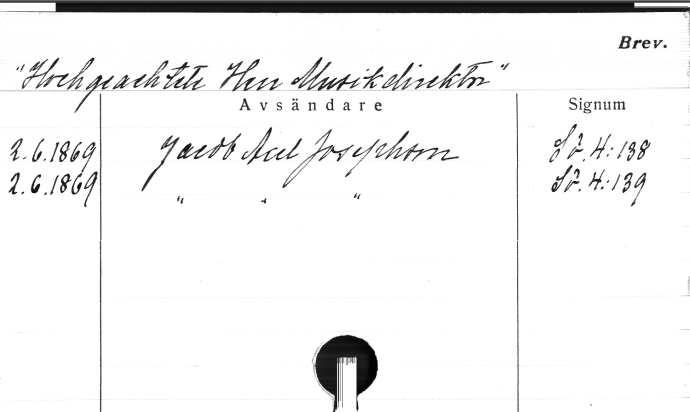 Brev.
"Hochgeachtete Herr Musikdirektor"
Avsändare Signum
2.6.1869 Jacob Axel Josephson Sö. 4:138
2.6.1869 " " " Sö. 4:139